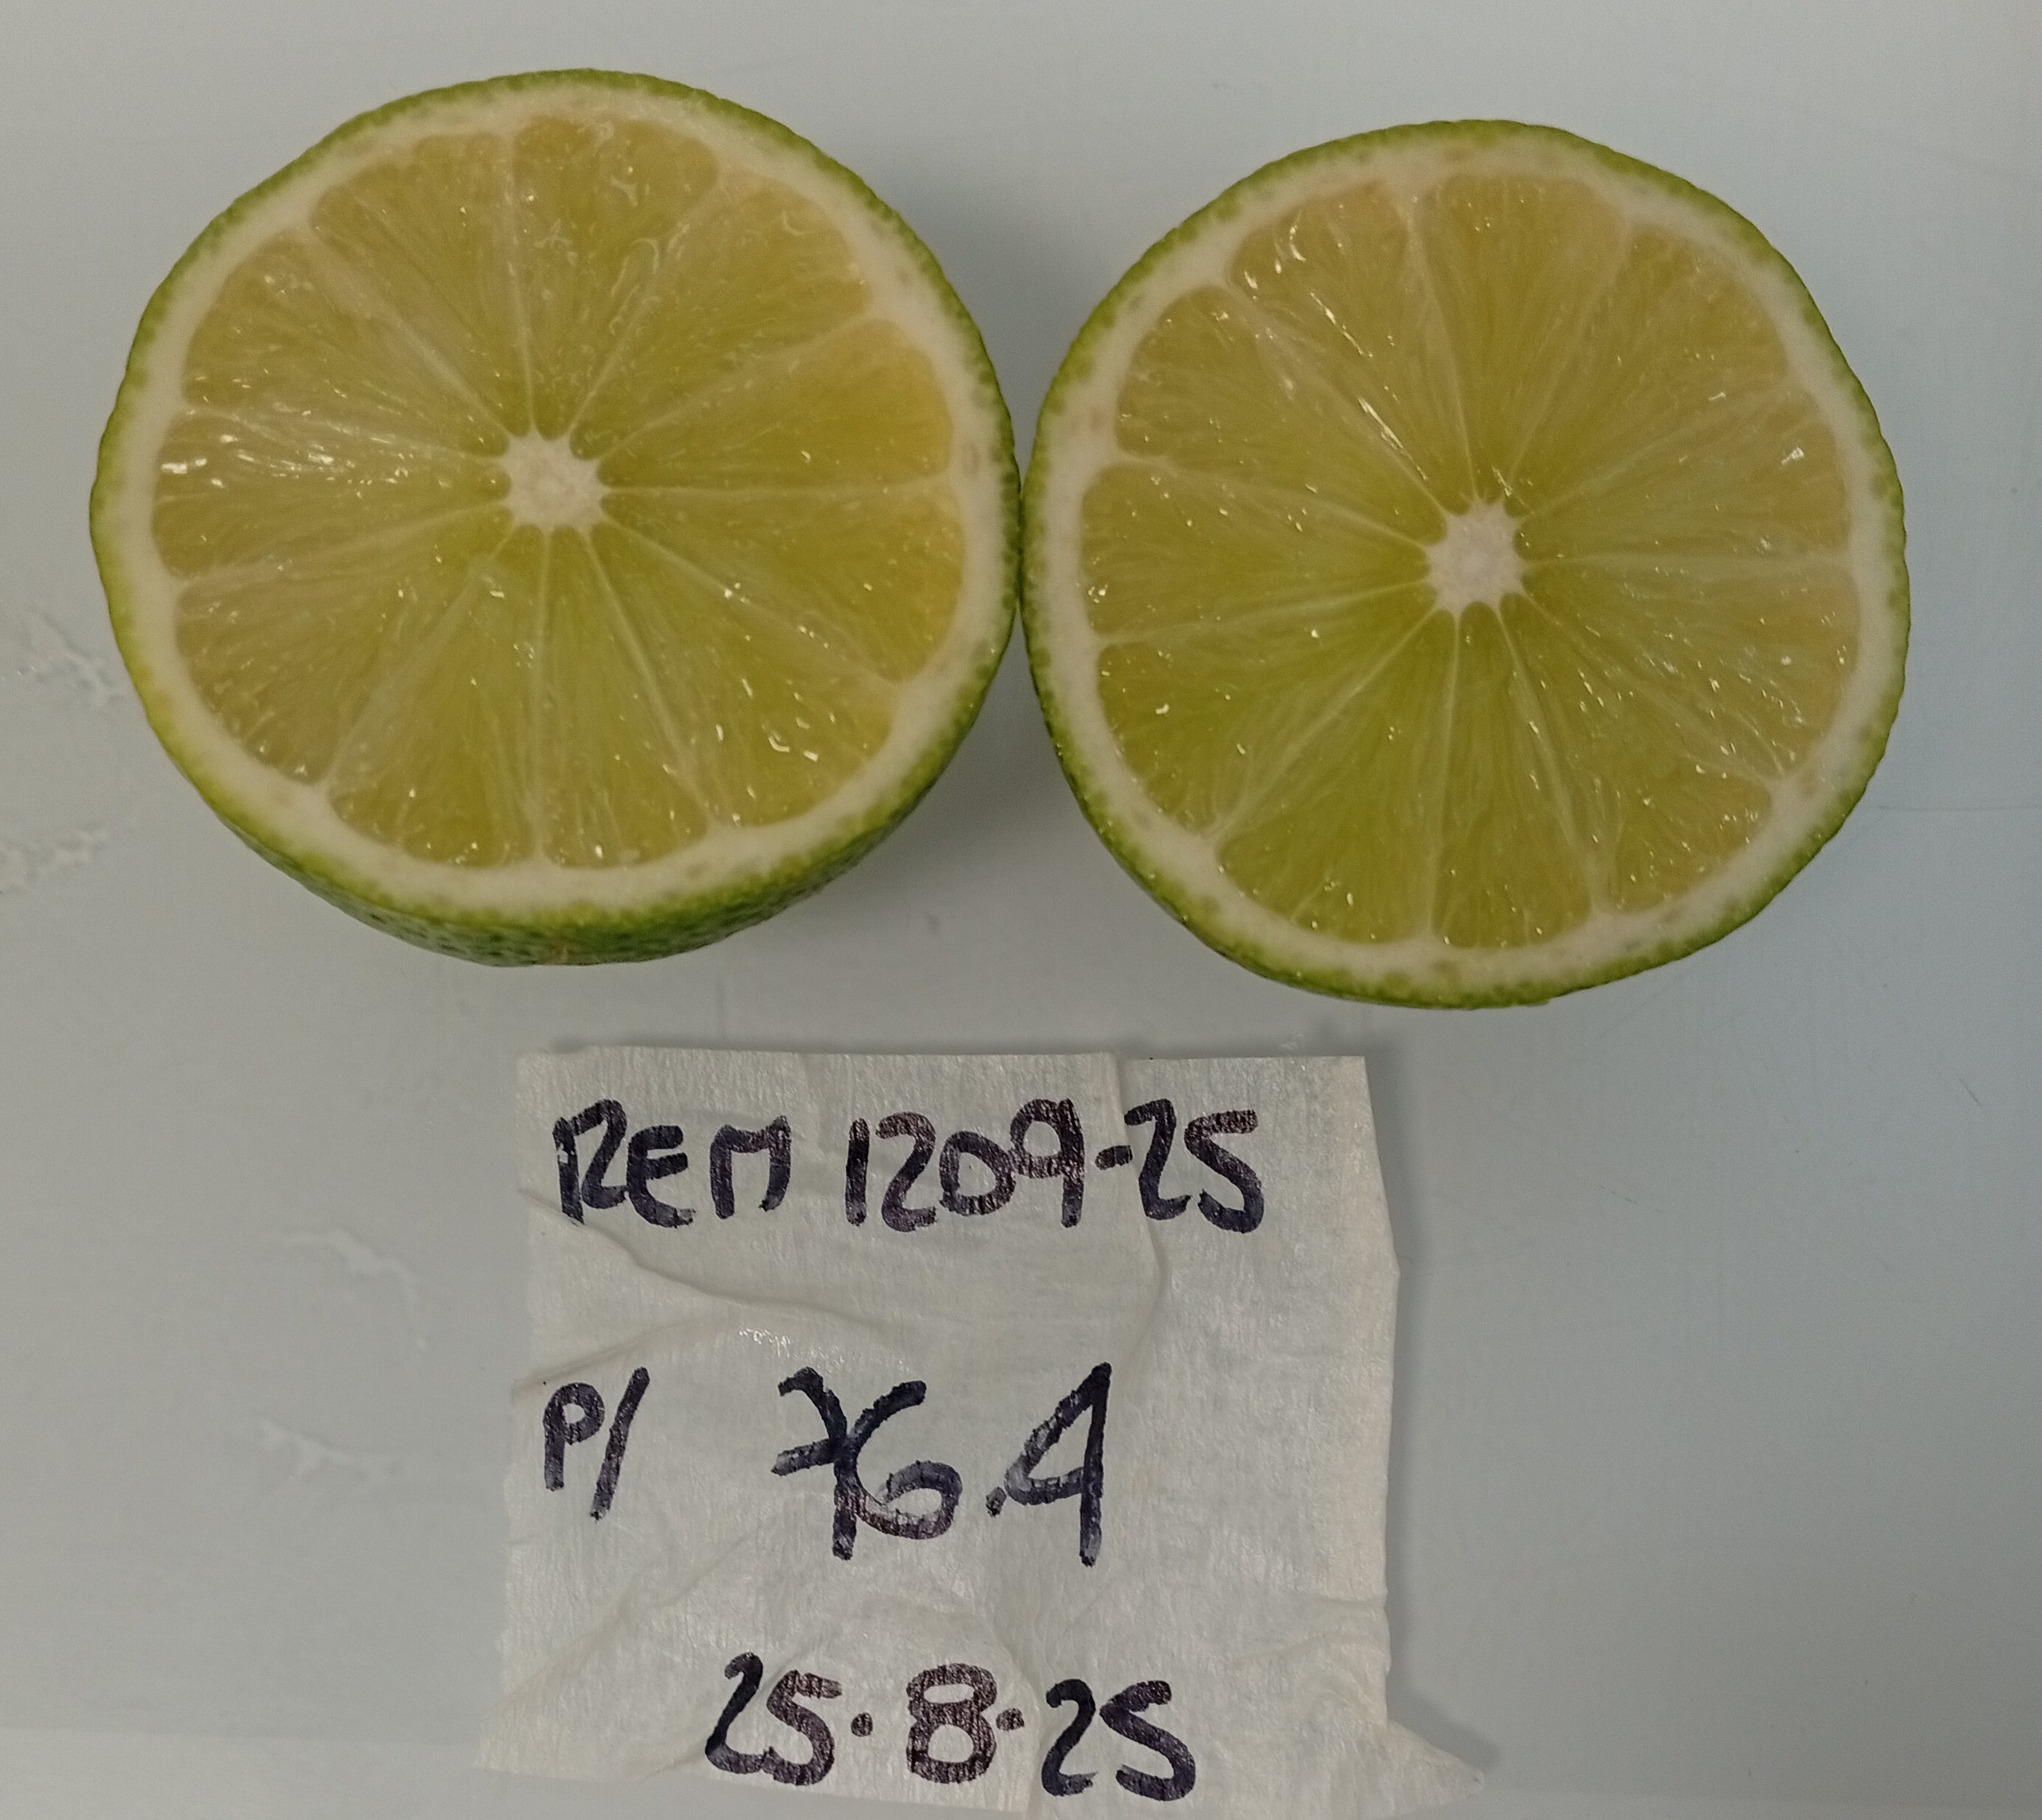 REM 1209-25
P/ 76.4
25.8.25